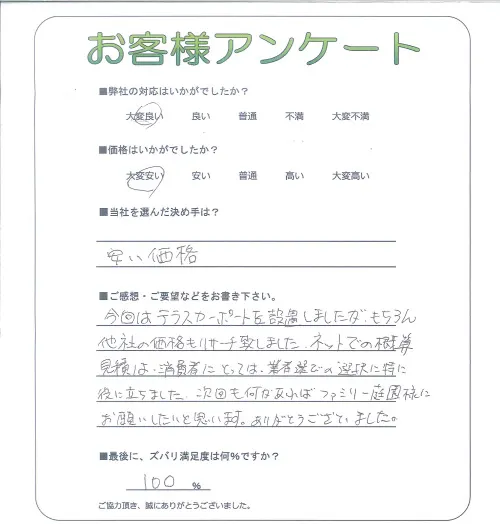 お客様アンケート
■弊社の対応はいかがでしたか?
大変良い 良い 普通 不満 大変不満
■価格はいかがでしたか?
大変安い 安い 普通 高い 大変高い
■当社を選んだ決め手は?
安い価格
■ご感想・ご要望などをお書き下さい。
今回はテラスカーポートを設置しましたが、もちろん
他社の価格もリサーチ致しました。ネットでの概算
見積は、消費者にとっては、業者選びの選択に特に
役に立ちました。次回も何かあればファミリー庭園様に
お願いしたいと思います。ありがとうございました。
■最後に、ズバリ満足度は何%ですか?
100 %
ご協力頂き、誠にありがとうございました。